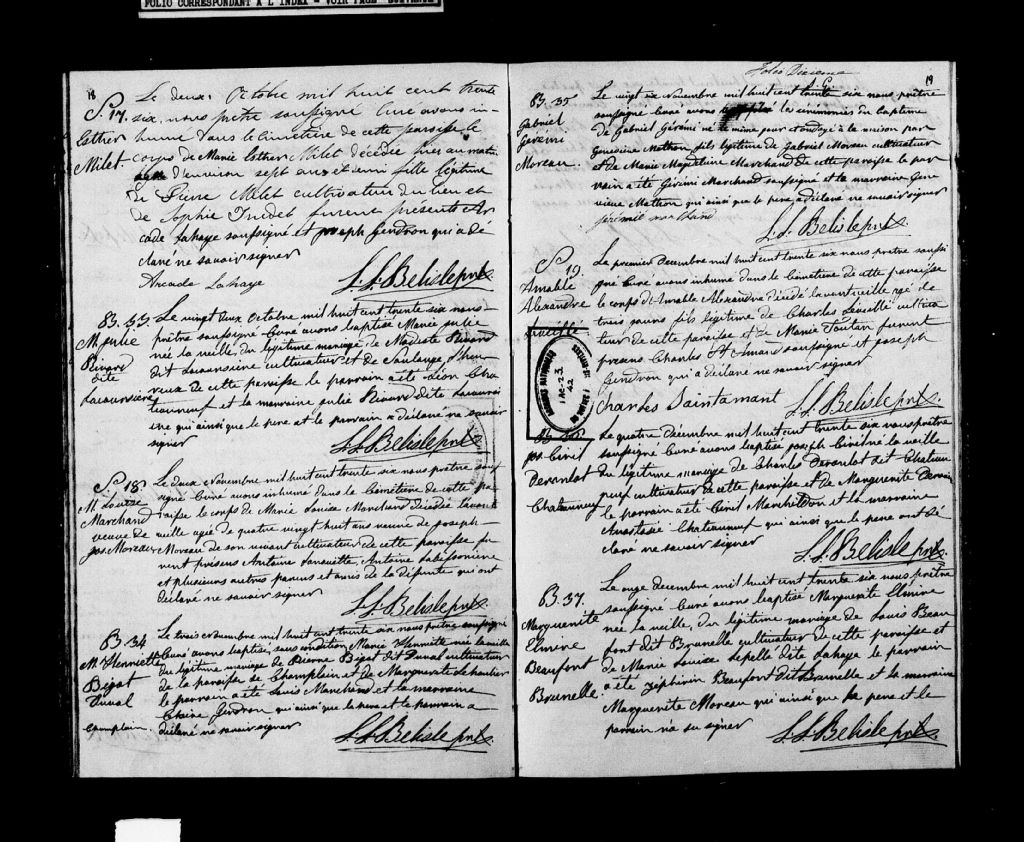 FOLIO CORRESPONDANT A L'INDEX - VOIR PAGE SUIVANTE
18
S. 17.
Esther
Milet.
Le deux Octobre mil huit cent trente
six, nous prêtre soussigné Curé avons in-
humé dans le Cimetière de cette paroisse le
corps de Marie Esther Milet décédée hier au matin
agée d'environ sept ans et demi fille légitime
de Pierre Milet cultivateur du lieu et
de Sophie Trudet furent présents Ar
cade Lahaye soussigné et joseph Gendron qui a dé
claré ne savoir signer
Arcade Lahaye
L. S. Belisle ptre.
B. 33
M. julie
Rivard
dite
Lacoursière
Le vingt deux Octobre mil huit cent trente six nous
prêtre soussigné Curé avons baptisé Marie julie
née la veille, du légitime mariage de Modeste Rivard
dit Lacoursière cultivateur et de Soulange
de cette paroisse le parrain a été Léon Cha
teauneuf et la marraine julie Rivard dite Lacoursi
ère qui ainsi que le pere et le parrain a déclaré ne savoir
signer
L. S. Belisle ptre
S. 18.
M. Louise
Marchand
veuve de
jos. Moreau
Le deux Novembre mil huit cent trente six nous prêtre sous
signé Curé avons inhumé dans le Cimétière de cette pa
roisse le corps de Marie Louise Marchand décédée l'avant
veille agée de quatre vingt huit ans veuve de joseph
Moreau de son vivant cultivateur de cette paroisse fu
rent présens Antoine Lanouette, Antoine
et plusieurs autres parens et amis de la défunte qui ont
déclaré ne savoir signer
L. S. Belisle ptre.
B. 34
M. Henriette
Bigot
Duval
Champlain.
Le trois Novembre mil huit cent trente six nous prêtre soussigné
Curé avons baptisé, sous condition Marie Henriette née la veille
du légitime mariage de Pierre Bigot dit Duval cultivateur
de la paroisse de Champlain et de Marguerite
le parrain a été Louis Marchand et la marraine
Claire Gendron qui ainsi que le pere et le parrain a
déclaré ne savoir signer
L. S. Belisle ptre.
Folio Dixieme
19
B. 35
Gabriel
Gérémi
Moreau.
Le vingt six Novembre mil huit cent trente six nous prêtre
soussigné Curé avons les cérémonies du baptême
de Gabriel Gérémi né le même jour et ondoyé à la maison par
Geneviève Mathon fils légitime de Gabriel Moreau cultivateur
et de Marie Magdeleine Marchand de cette paroisse le par
rain a été Gérémi Marchand soussigné et la marraine Gene
vieve Mathon qui ainsi que le pere a déclaré ne savoir signer
L. S. Belisle ptre.
S. 19.
Amable
Alexandre
Léveillé
Le premier Décembre mil huit cent trente six nous prêtre soussi
gné Curé avons inhumé dans le Cimétière de cette paroisse
le corps d'Amable Alexandre décédé l'avant veille agé de
trois fils légitime de Charles Léveillé cultiva
teur de cette paroisse et de Marie Toutan furent
présens Charles St Amand soussigné et joseph
Gendron qui a déclaré ne savoir signer
Charles Saintamant
L. S. Belisle ptre.
B. 36.
jos. Ciril
Chateauneuf
Le quatre Décembre mil huit cent trente six nous prêtre
soussigné Curé avons baptisé joseph Ciril né la veille
du légitime mariage de Charles dit Chateau
neuf cultivateur de cette paroisse et de Marguerite
le parrain a été Ciril Marchildon et la marraine
Anastasie Chateauneuf qui ainsi que le pere ont dé
claré ne savoir signer
L. S. Belisle ptre.
B. 37.
Marguerite
Elmire
Beaufort
Brunelle.
Le onze Décembre mil huit cent trente six nous prêtre
soussigné Curé avons baptisé Marguerite Elmire
née la veille, du légitime mariage de Louis Beau
fort dit Brunelle cultivateur de cette paroisse et
de Marie Louise Lepellé dite Lahaye le parrain
a été Zéphirin Beaufort dit Brunelle et la marraine
Marguerite Moreau qui ainsi que le pere et le
parrain n'a su signer
L. S. Belisle ptre.